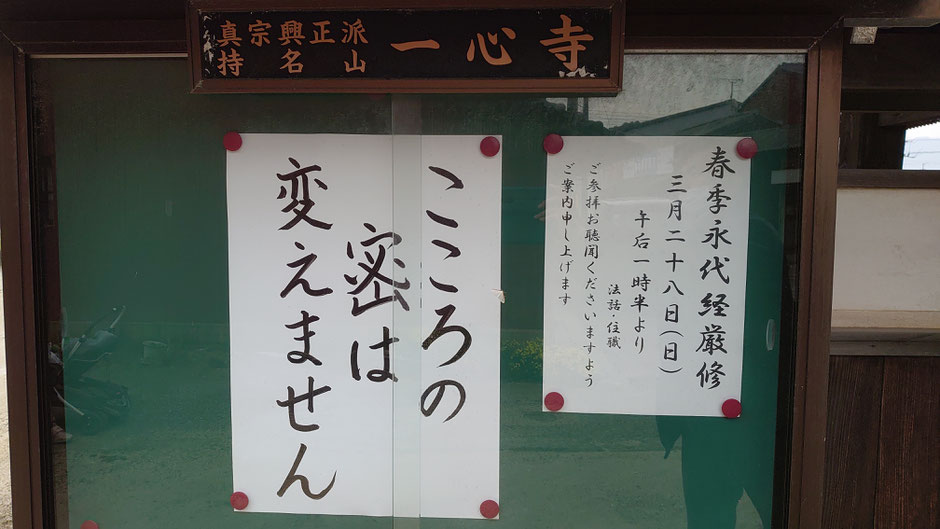 真宗興正派
持名山
一心寺
こころの
密は
変えません
春季永代経厳修
三月二十八日(日)
午后一時半より
法話・住職
ご参拝お聴聞くださいますよう
ご案内申し上げます